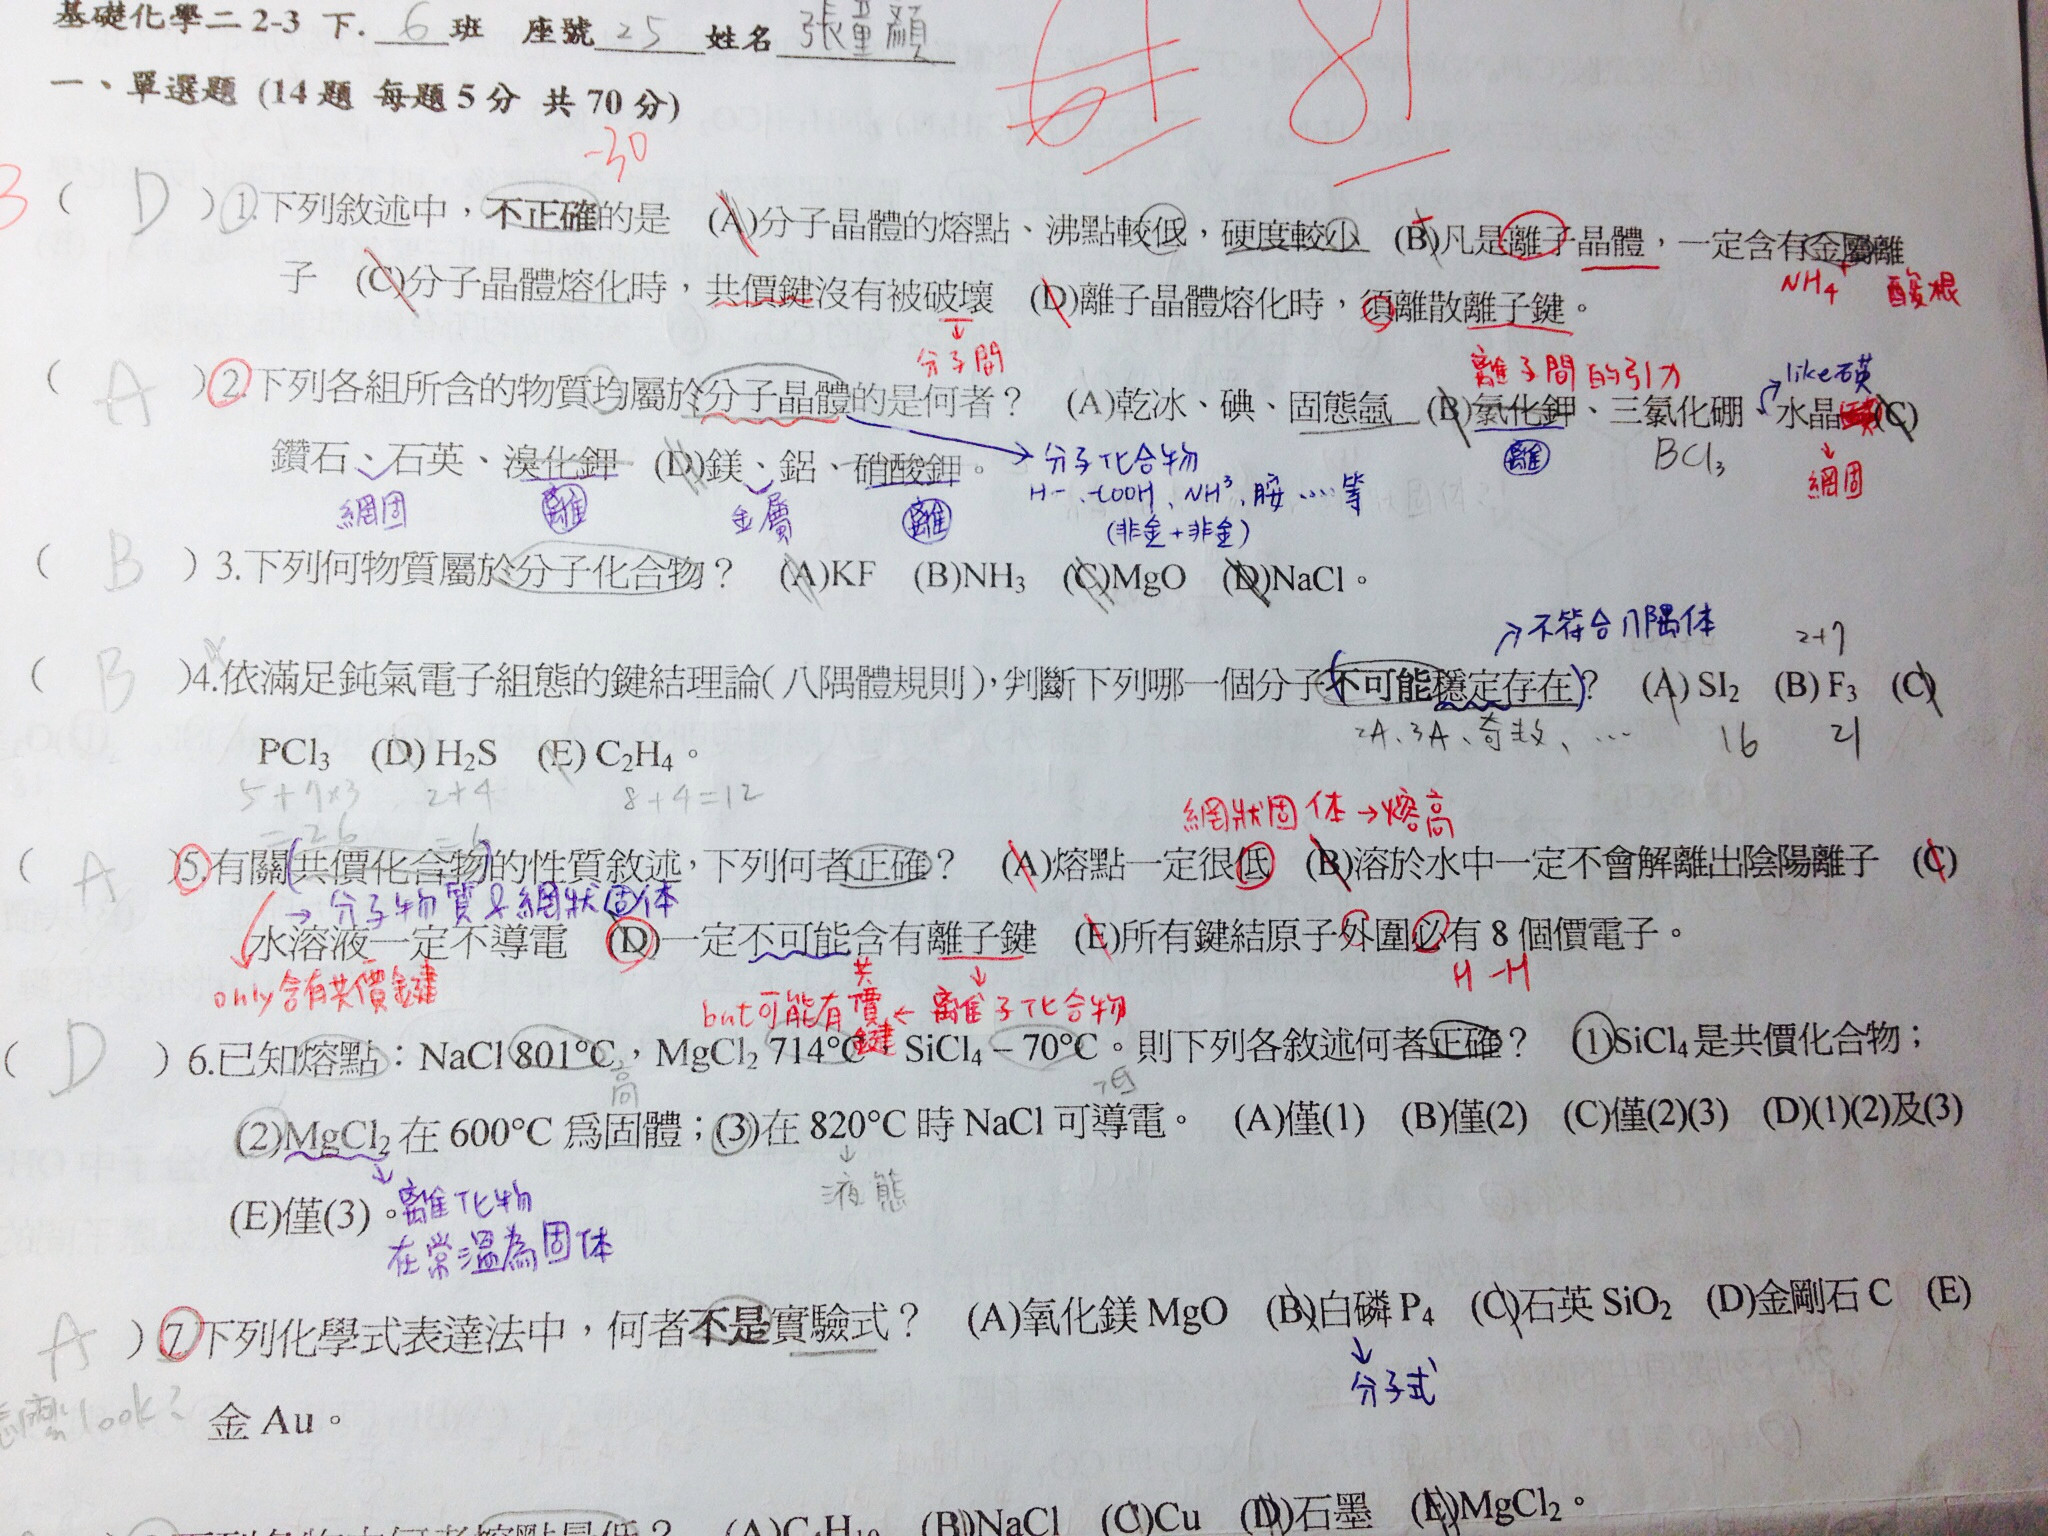 基礎化學二 2-3 下. 6 班 座號 25 姓名 張童顏
61 81
一、單選題 (14 題 每題 5 分 共 70 分)
-30
( D ) 1.下列敘述中,不正確的是 (A)分子晶體的熔點、沸點較低,硬度較小 (B)凡是離子晶體,一定含有金屬離
NH4+ 酸根
子 (C)分子晶體熔化時,共價鍵沒有被破壞 (D)離子晶體熔化時,須離散離子鍵。
↓分子間 離子間的引力 like 石英
( A ) 2.下列各組所含的物質均屬於分子晶體的是何者? (A)乾冰、碘、固態氬 (B)氯化鉀、三氯化硼、水晶 (C)
離 BCl3 ↓網固
鑽石、石英、溴化鉀 (D)鎂、鋁、硝酸鉀。 → 分子化合物
網固 離 金屬 離 H-、-COOH、NH3、胺……等
(非金+非金)
( B ) 3.下列何物質屬於分子化合物? (A)KF (B)NH3 (C)MgO (D)NaCl。
→不符合八隅体 2+7
( B )4.依滿足鈍氣電子組態的鍵結理論(八隅體規則),判斷下列哪一個分子(不可能穩定存在)? (A) SI2 (B) F3 (C)
2A、3A、奇数、… 16 21
PCl3 (D) H2S (E) C2H4。
5+7×3 2+4 8+4=12
=26 =6
網狀固体→熔高
( A )5.有關(共價化合物)的性質敘述,下列何者正確? (A)熔點一定很低 (B)溶於水中一定不會解離出陰陽離子 (C)
→ 分子物質&網狀固体
水溶液一定不導電 (D)一定不可能含有離子鍵 (E)所有鍵結原子外圍必有 8 個價電子。
only含有共價鍵 but可能有共價鍵 ← 離子化合物 H-H
( D ) 6.已知熔點:NaCl 801°C,MgCl2 714°C SiCl4 – 70°C。則下列各敘述何者正確? (1)SiCl4 是共價化合物;
高 低
(2)MgCl2 在 600°C 為固體;(3)在 820°C 時 NaCl 可導電。 (A)僅(1) (B)僅(2) (C)僅(2)(3) (D)(1)(2)及(3)
↓液態
(E)僅(3)。離化物
在常溫為固体
A ) 7.下列化學式表達法中,何者不是實驗式? (A)氧化鎂 MgO (B)白磷 P4 (C)石英 SiO2 (D)金剛石 C (E)
↓分子式
怎麼look?
金 Au。
(B)NaCl (C)Cu (D)石墨 (E)MgCl2。